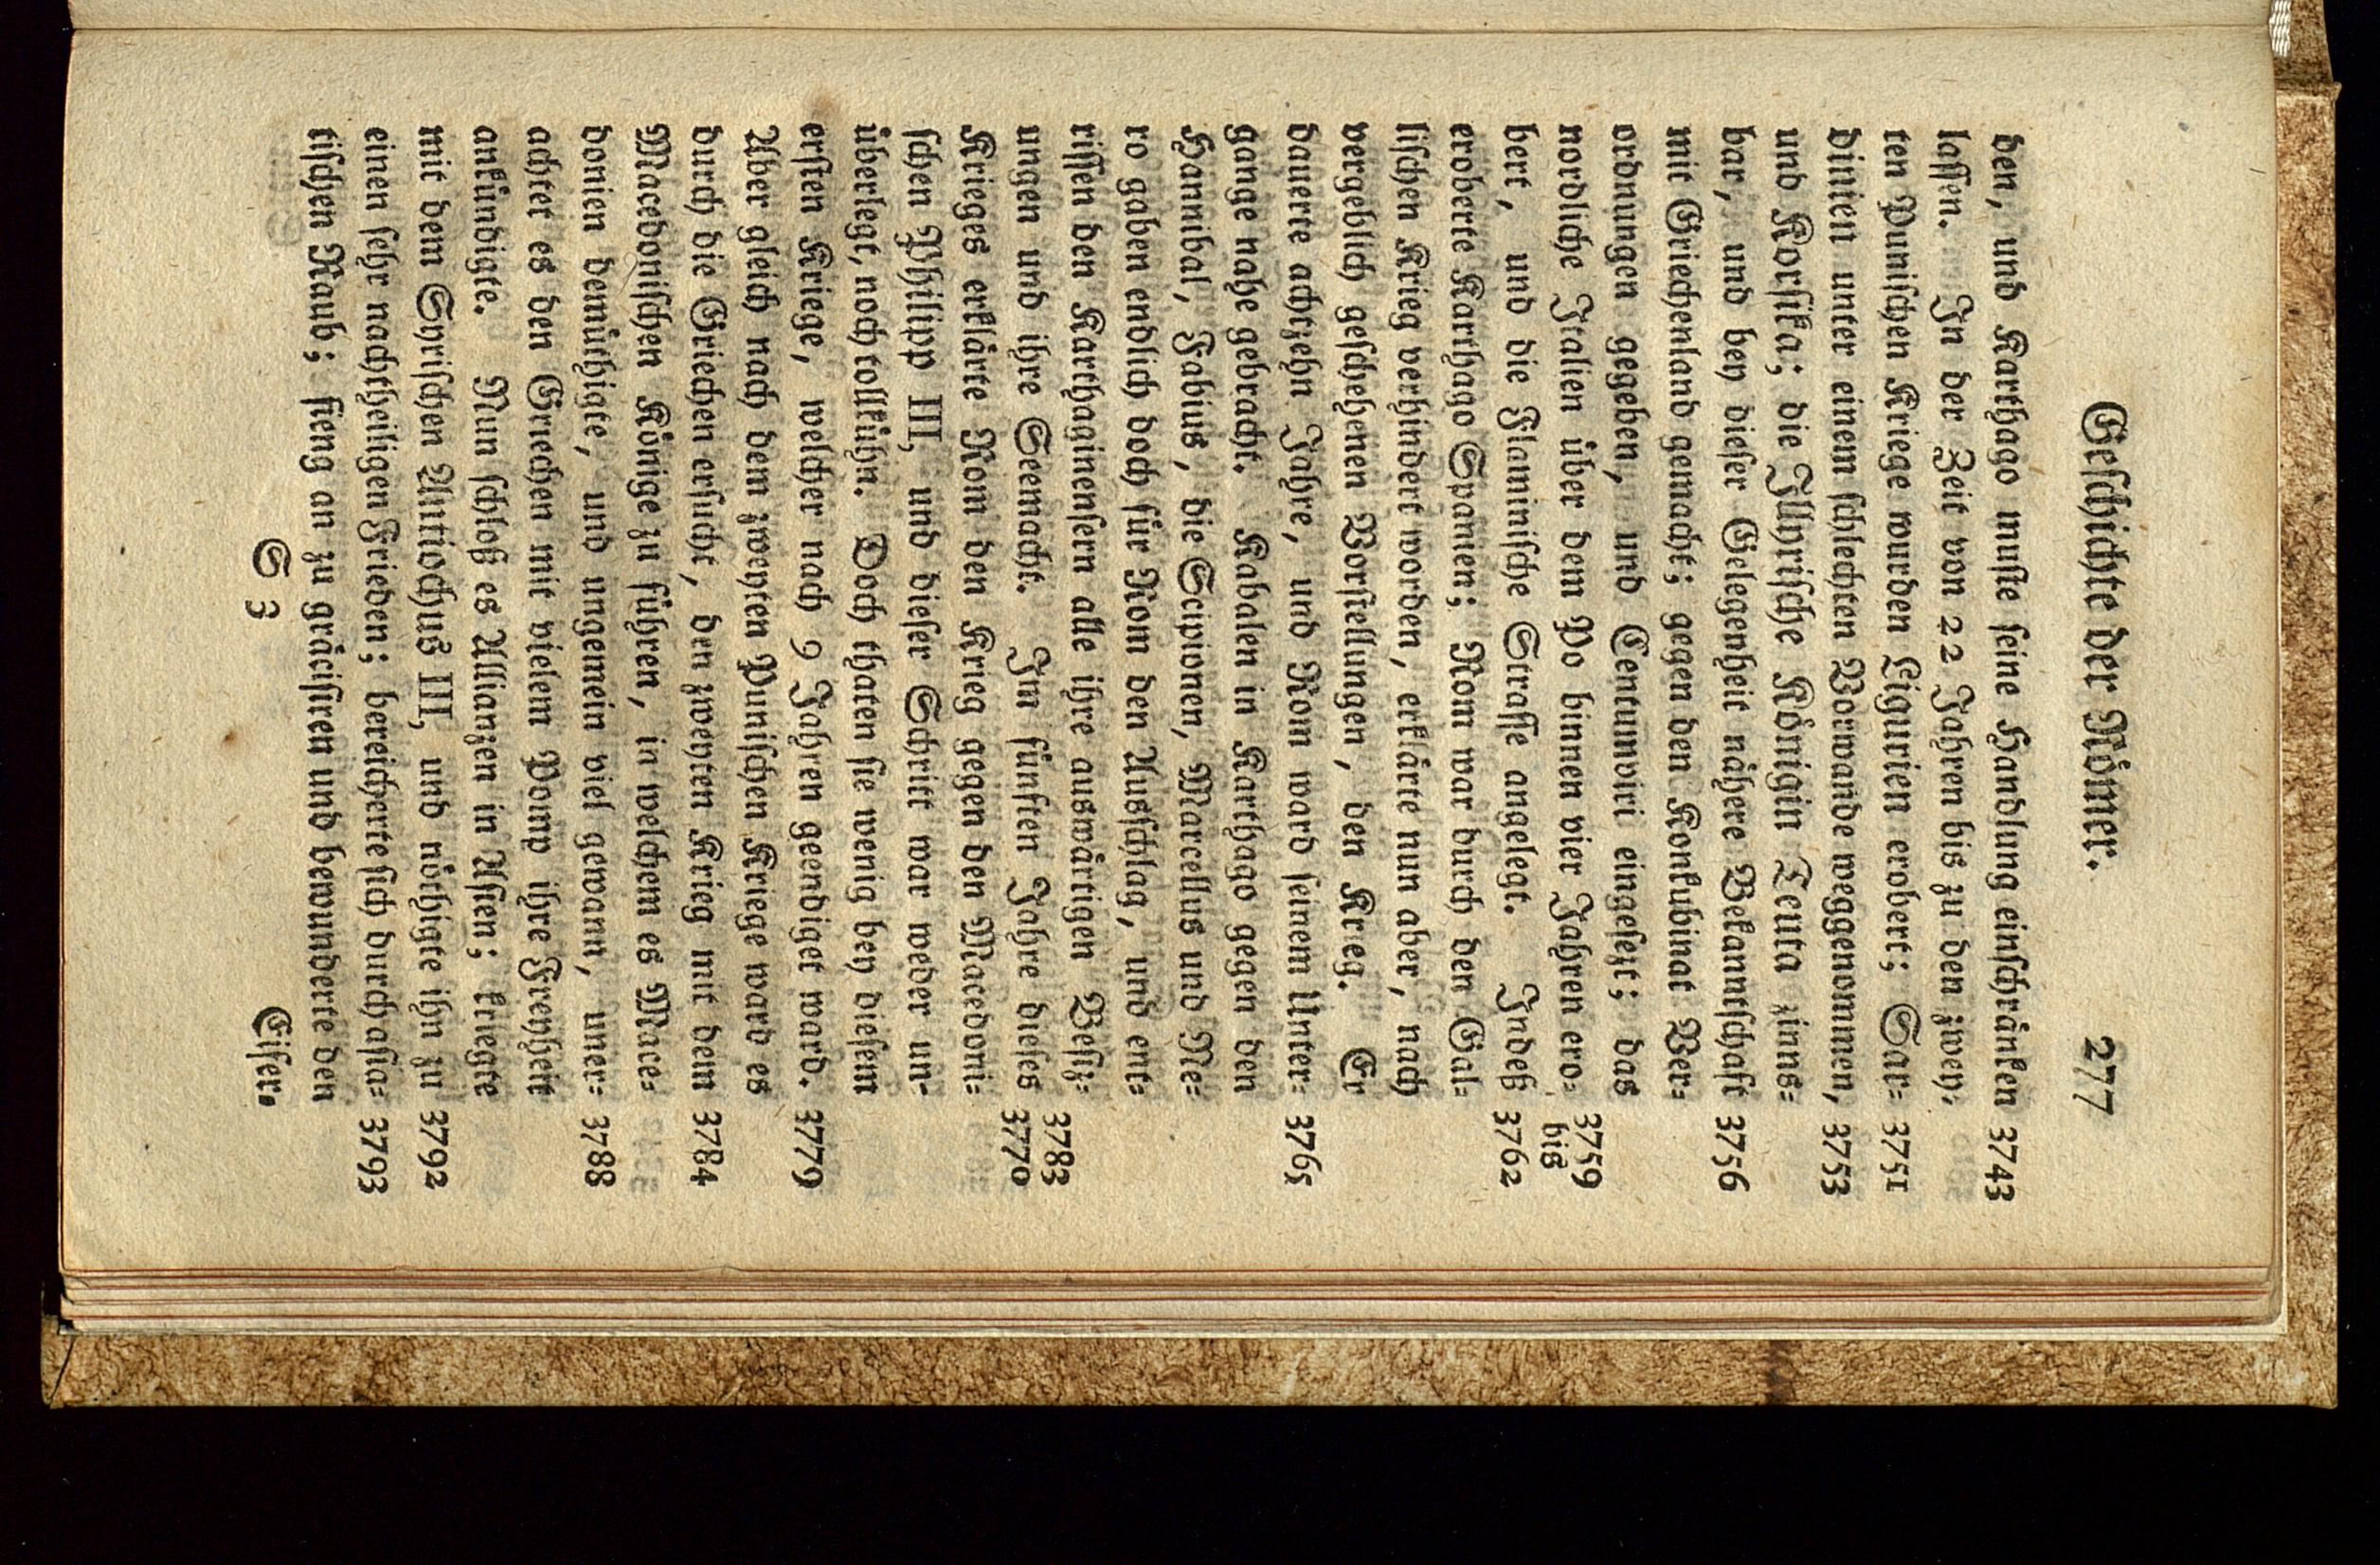 Geſchichte der Römer. 277
den, und Karthago muſte ſeine Handlung einſchränken 3743
laſſen. In der Zeit von 22 Jahren bis zu den zwey-
ten Puniſchen Kriege wurden Ligurien erobert; Sar- 3751
dinien unter einem ſchlechten Vorwande weggenommen, 3753
und Korſika; die Illyriſche Königin Teuta zinns-
bar, und bey dieſer Gelegenheit nähere Bekanntſchaft 3756
mit Griechenland gemacht; gegen den Konkubinat Ver-
ordnungen gegeben, und Centumviri eingeſetzt; das
nordliche Italien über dem Po binnen vier Jahren ero- 3759
bis
bert, und die Flaminiſche Straſſe angelegt. Indeß 3762
eroberte Karthago Spanien; Rom war durch den Gal-
liſchen Krieg verhindert worden, erklärte nun aber, nach
vergeblich geſchehenen Vorſtellungen, den Kreg. Er
dauerte achtzehn Jahre, und Rom ward ſeinem Unter- 3765
gange nahe gebracht. Kabalen in Karthago gegen den
Hannibal, Fabius, die Scipionen, Marcellus und Ne-
ro gaben endlich doch für Rom den Ausſchlag, und ent-
riſſen den Karthaginenſern alle ihre auswärtigen Beſitz- 3783
ungen und ihre Seemacht. Im fünften Jahre dieſes 3770
Krieges erklärte Rom den Krieg gegen den Macedoni-
ſchen Philipp III, und dieſer Schritt war weder un-
überlegt, noch tollkühn. Doch thaten ſie wenig bey dieſem
erſten Kriege, welcher nach 9 Jahren geendiget ward. 3779
Aber gleich nach dem zweyten Puniſchen Kriege ward es
durch die Griechen erſucht, den zweyten Krieg mit dem 3784
Macedoniſchen Könige zu führen, in welchem es Mace-
donien demüthigte, und ungemein viel gewann, uner- 3788
achtet es den Griechen mit vielem Pomp ihre Freyheit
ankündigte. Nun ſchloß es Allianzen in Aſien; kriegte
mit dem Syriſchen Antiochus III, und nöthigte ihn zu 3792
einen ſehr nachtheiligen Frieden; bereicherte ſich durch aſia- 3793
tiſchen Raub; fieng an zu gräciſiren und bewunderte den
S 3 Eifer,